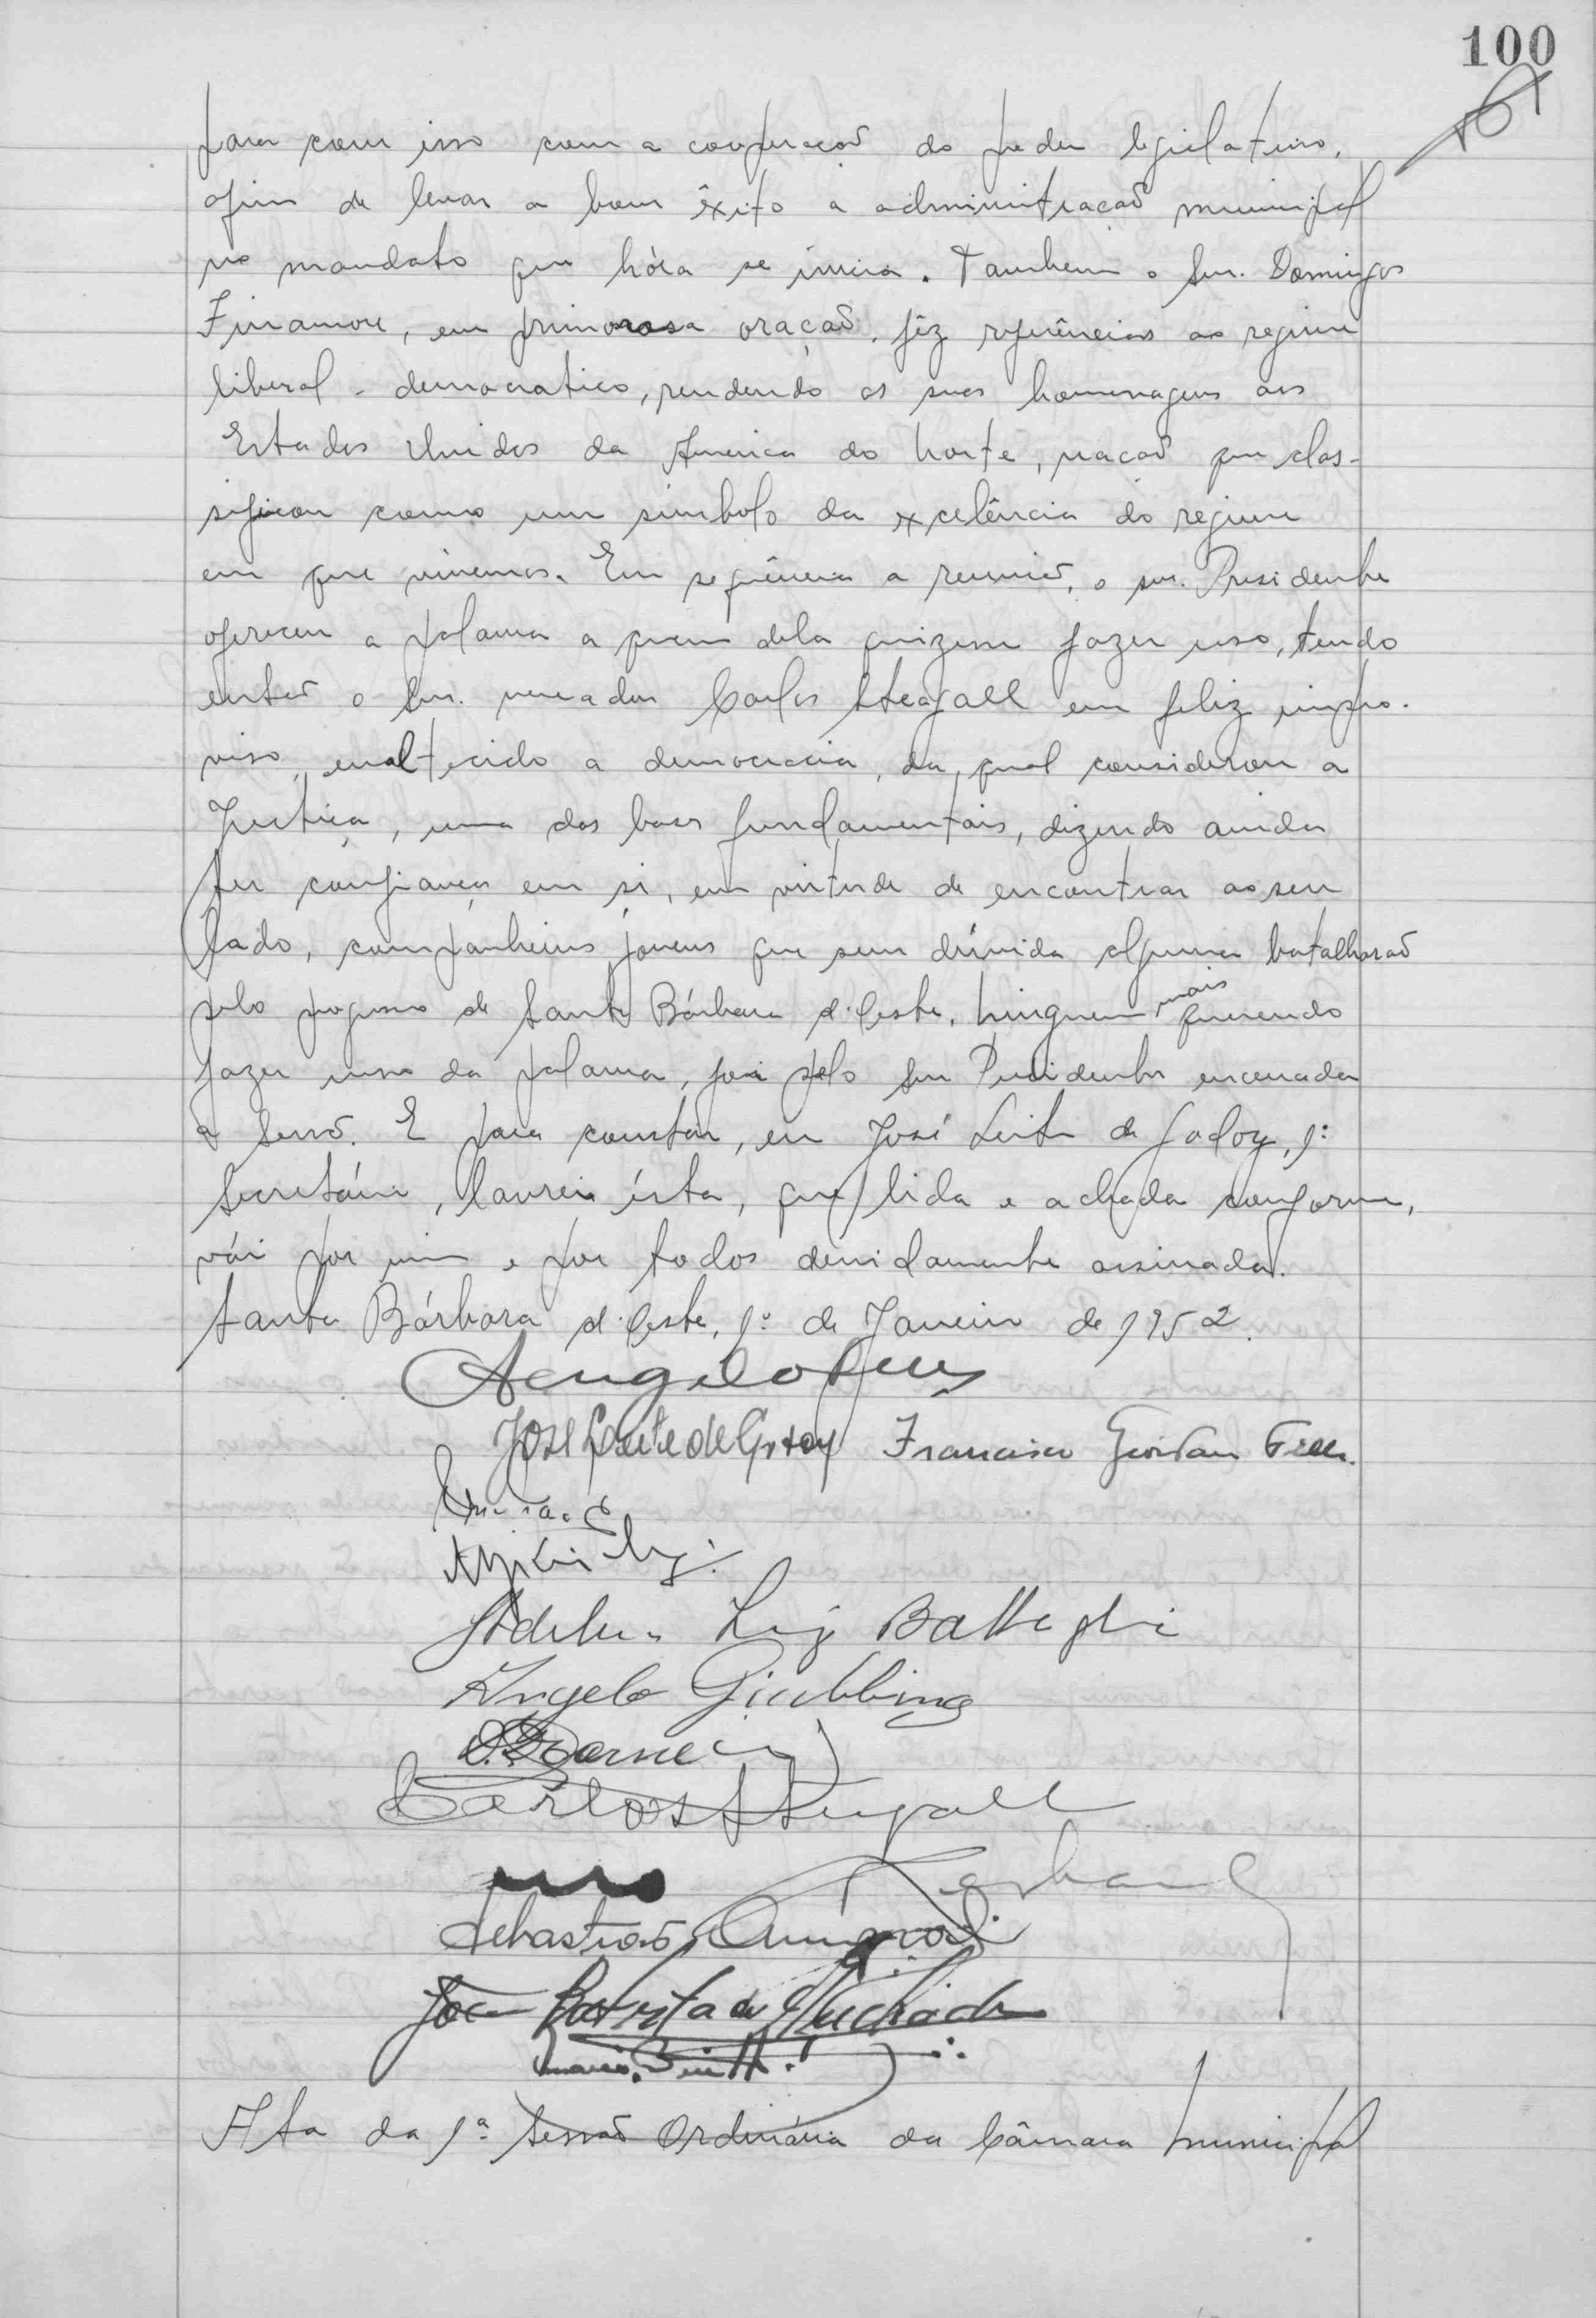 100
para com isso com a cooperação do poder legislativo,
afim de levar a bom êxito a administração municipal
no mandato que hóra se inicia. Tambem o Snr. Domingos
Finamore, em primorosa oração, fêz referências ao regime
liberal-democratico, rendendo as suas homenagens aos
Estados Unidos da America do Norte, nação que clas-
sificou como um simbolo da excelência do regime
em que vivemos. Em seqüência a reunião, o snr. Presidente
ofereceu a palavra a quem dela quizesse fazer uso, tendo
então o Snr. vereador Carlos Steagall em feliz impro-
viso, enaltecido a democracia, da qual considerou a
Justiça, uma das bases fundamentais, dizendo ainda
ter confiança em si, em virtude de encontrar ao seu
lado, companheiros jovens que sem dúvida alguma batalharão
pelo progresso de Santa Bárbara d'Oeste. Ninguem mais querendo
fazer uso da palavra, foi pelo Snr Presidente encerrada
a Sessão. E para constar, eu José Leite de Godoy, 1º
Secretário, lavrei ésta, que lida e achada conforme,
vái por mim e por todos devidamente assinada.
Santa Bárbara d'Oeste, 1º de Janeiro de 1952.
José Leite de Godoy Francisco Giordano
Luiz Battagli
Angelo Giubbina
Carlos Steagall
Sebastião
João Baptista de Machado
Ata da 1ª Sessão Ordinária da Câmara Municipal